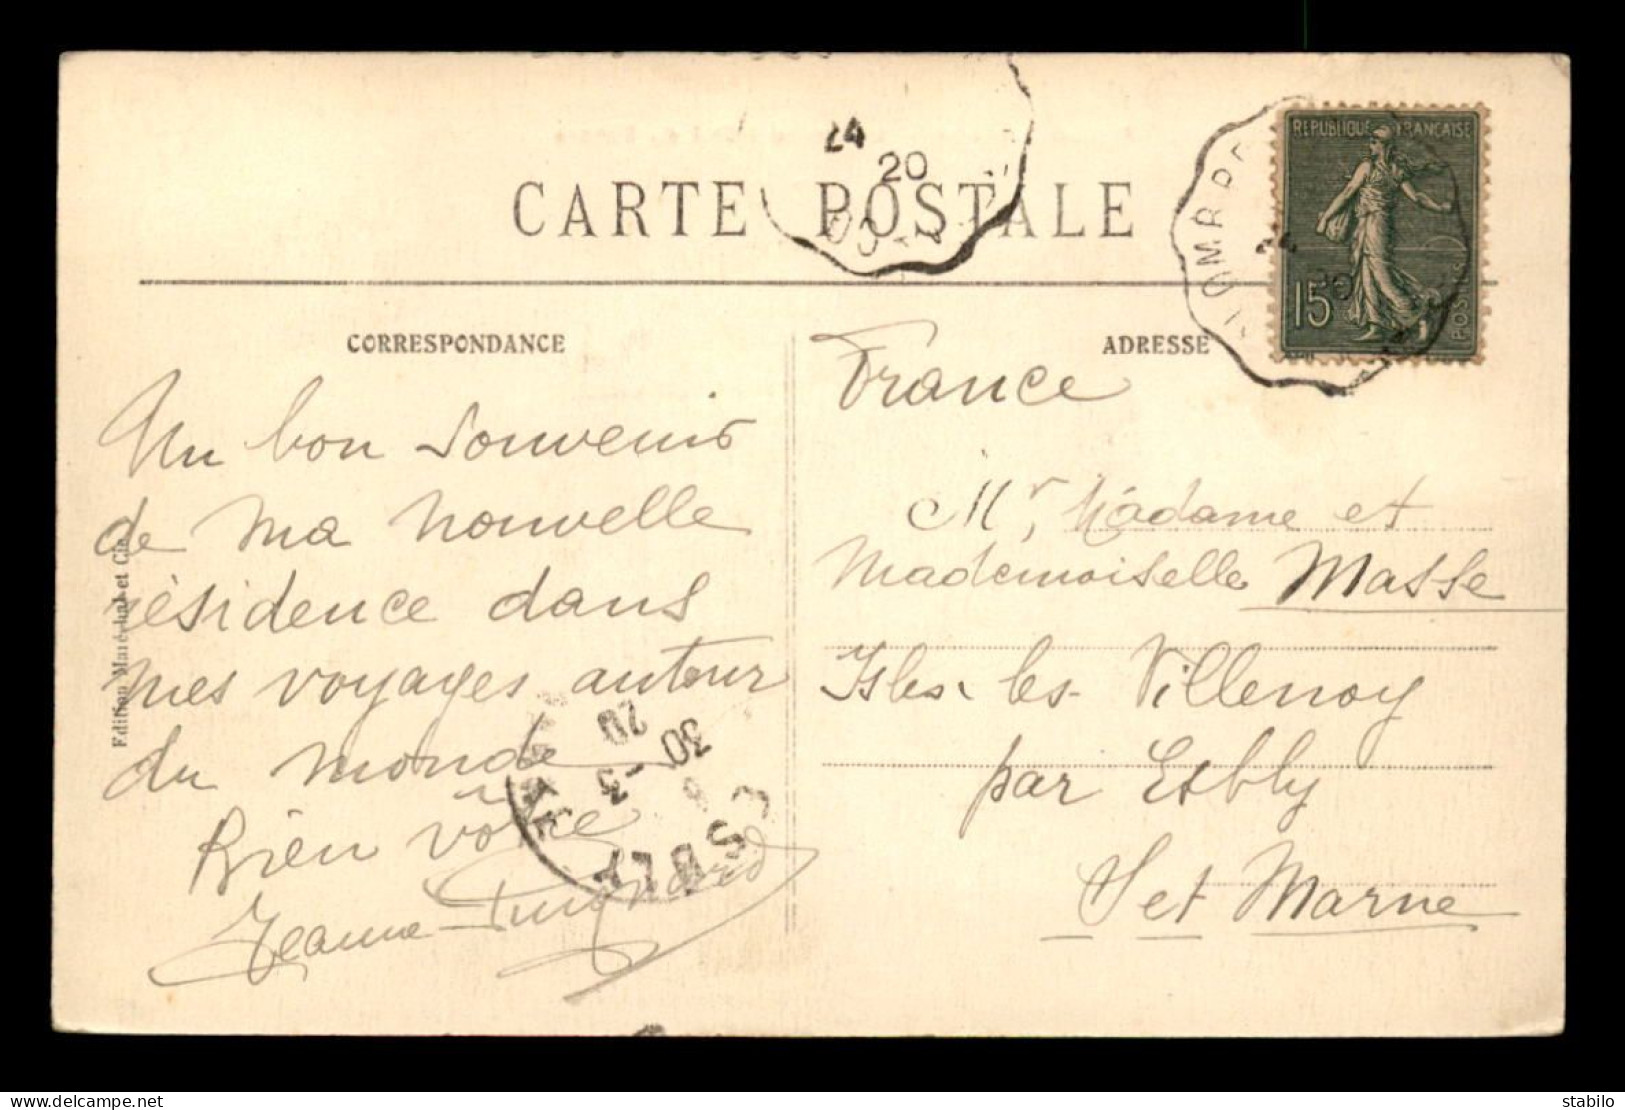 CARTE POSTALE
24
20
REPUBLIQUE FRANÇAISE
15
POSTES
CORRESPONDANCE
ADRESSE
Un bon souvenir
de ma nouvelle
résidence dans
mes voyages autour
du monde
Bien vôtre
Jeanne
France
Mr, Madame et
Mademoiselle Masse
Isles les Villenoy
par Esbly
S et Marne
Edition Maréchal et Cie
20
30 -3
ESBLY
stabilo
www.delcampe.net